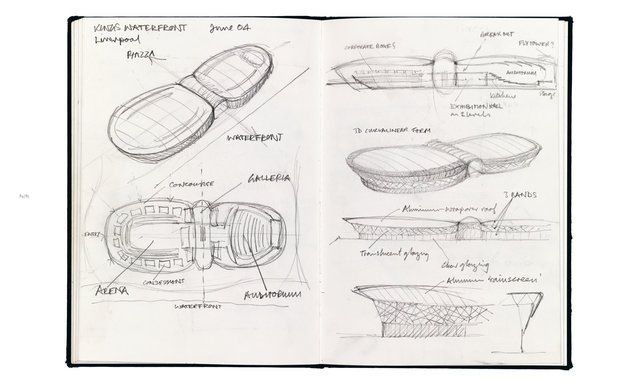 KINGS WATERFRONT June 04
Liverpool
PIAZZA
WATERFRONT
CONCOURSE
GALLERIA
ARENA
CONCOURSE
AUDITORIUM
WATERFRONT
CORPORATE BOXES
BREAKOUT
FLYTOWER?
AUDITORIUM
Kitchens
Stage
EXHIBITION HALL
on 2 levels
3D CURVILINEAR FORM
3 BANDS
Aluminium wrapover roof
Translucent glazing
Clear glazing
Aluminium 'rainscreen'